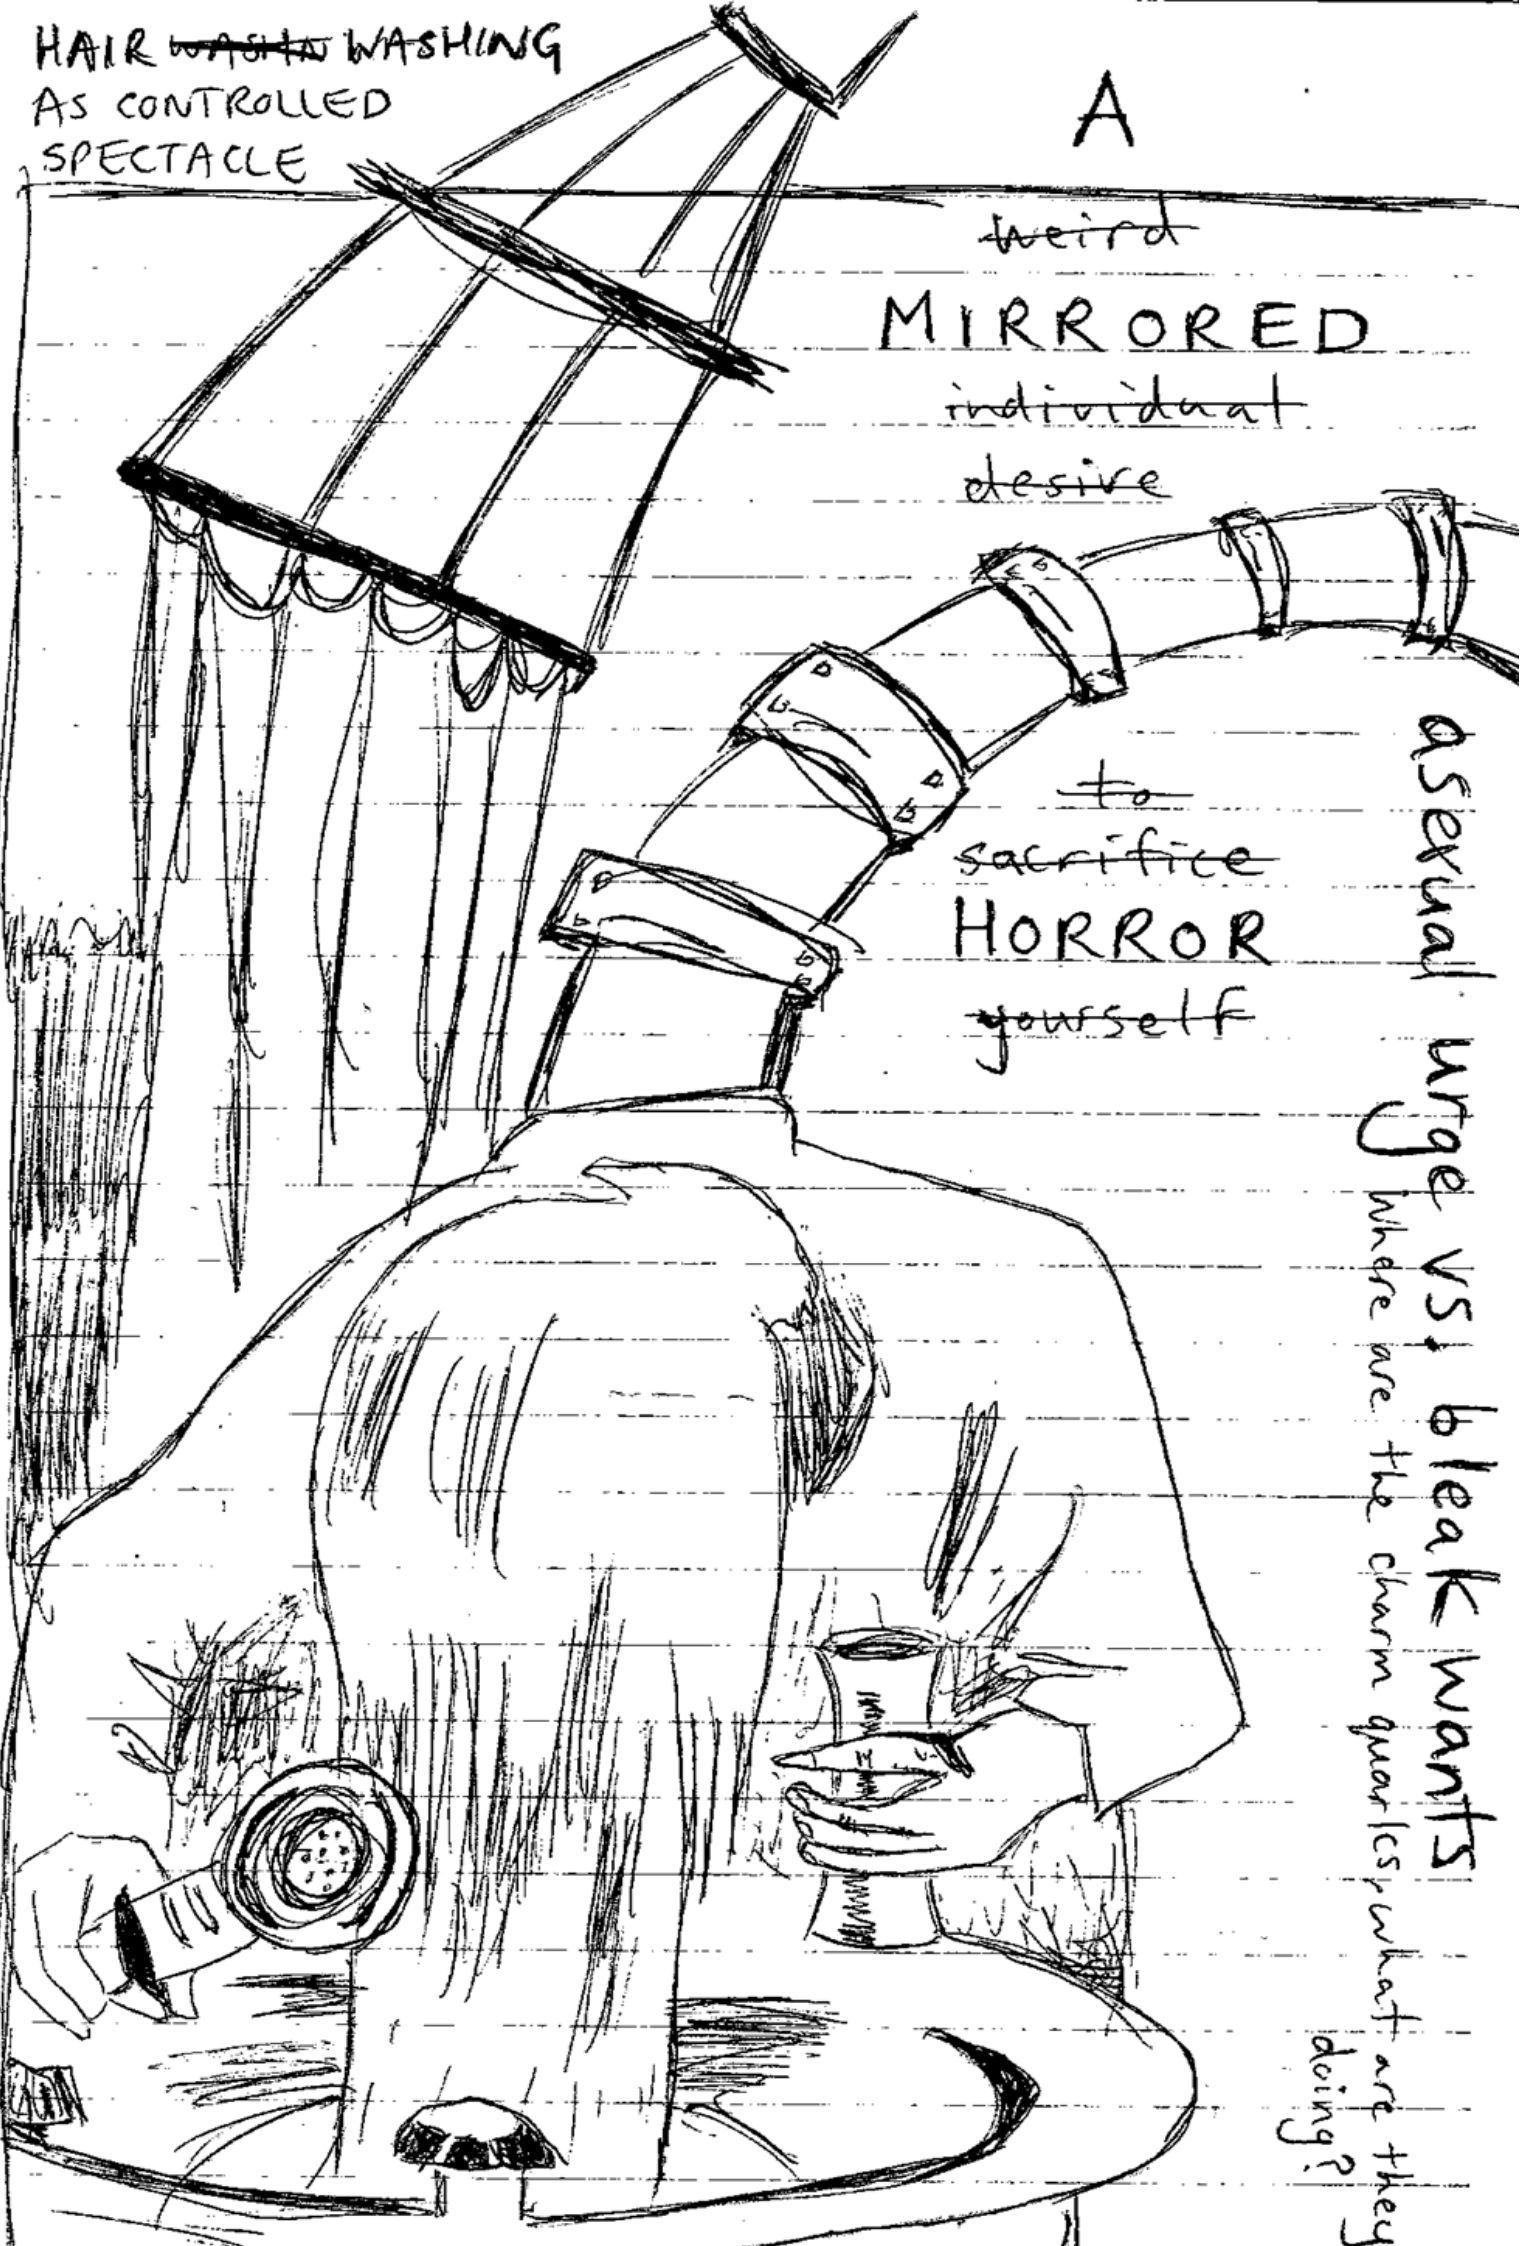 HAIR WASHIN WASHING
AS CONTROLLED
SPECTACLE
A
weird
MIRRORED
individual
desire
to
sacrifice
HORROR
yourself
asexual urge vs. bleak wants
where are the charm quarks, what are they
doing?